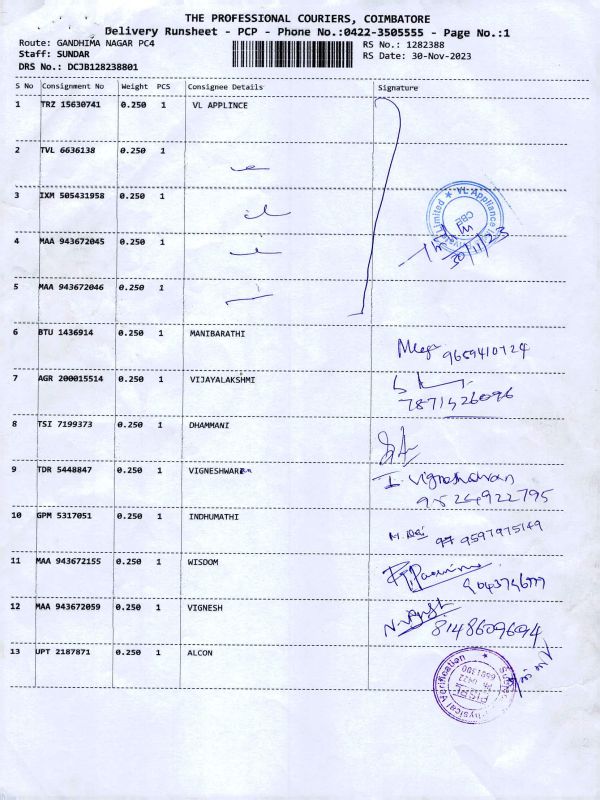 THE PROFESSIONAL COURIERS, COIMBATORE
Delivery Runsheet - PCP - Phone No.:0422-3505555 - Page No.:1
Route: GANDHIMA NAGAR PC4
RS No.: 1282388
Staff: SUNDAR
RS Date: 30-Nov-2023
DRS No.: DCJB128238801
S No Consignment No Weight PCS Consignee Details Signature
1 TRZ 15630741 0.250 1 VL APPLINCE
2 TVL 6636138 0.250 1
3 IXM 505431958 0.250 1
VL Appliance
CBE
30/11/23
4 MAA 943672045 0.250 1
5 MAA 943672046 0.250 1
6 BTU 1436914 0.250 1 MANIBARATHI
9659410724
7 AGR 200015514 0.250 1 VIJAYALAKSHMI
7871526096
8 TSI 7199373 0.250 1 DHAMMANI
9 TDR 5448847 0.250 1 VIGNESHWARAN
I. Vigneshwaran
95264922795
10 GPM 5317051 0.250 1 INDHUMATHI
9597975149
11 MAA 943672155 0.250 1 WISDOM
12 MAA 943672059 0.250 1 VIGNESH
8148609694
13 UPT 2187871 0.250 1 ALCON
Physical Verification